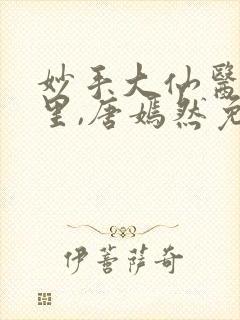 妙手大仙醫
里,唐嫣然免
伊菩薩奇